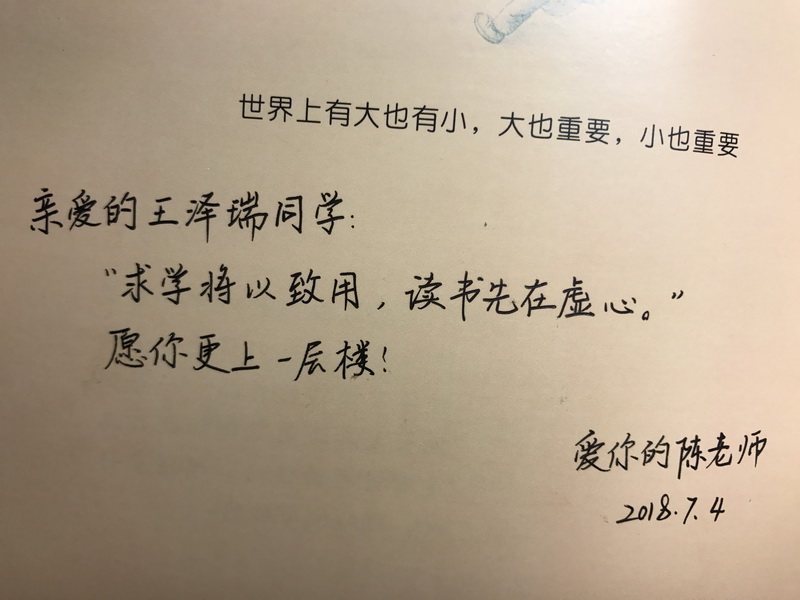 世界上有大也有小，大也重要，小也重要
亲爱的王泽瑞同学：
“求学将以致用，读书先在虚心。”
愿你更上一层楼！
爱你的陈老师
2018.7.4